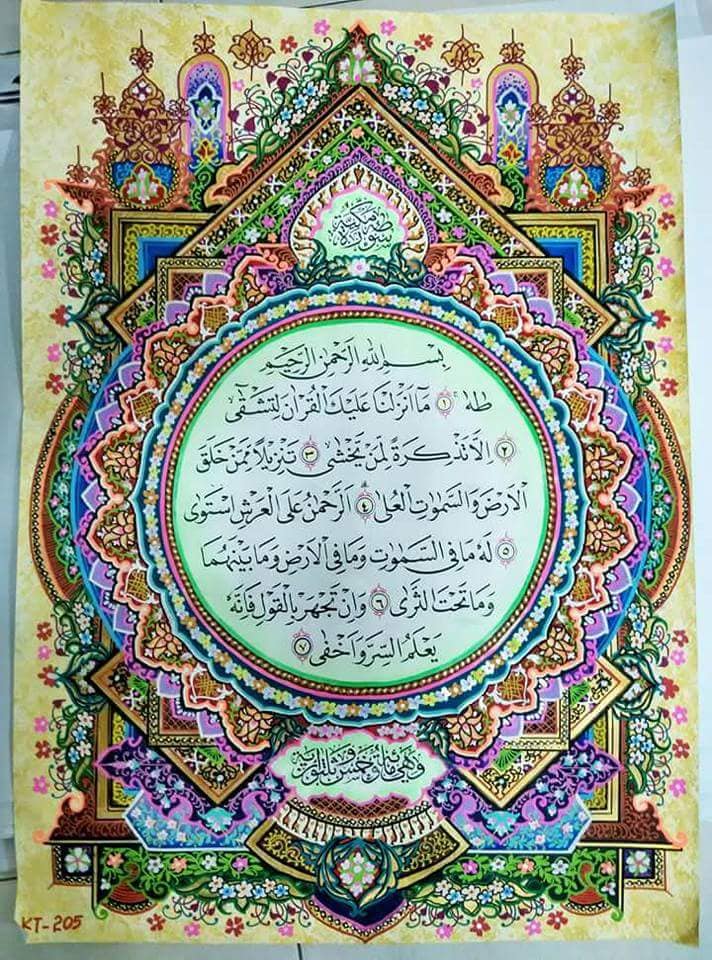 سورة طه مكية
بسم الله الرحمن الرحيم
طه ۚ ۝١ مَآ اَنْزَلْنَا عَلَيْكَ الْقُرْاٰنَ لِتَشْقٰٓى
۝٢ اِلَّا تَذْكِرَةً لِّمَنْ يَّخْشٰى ۝٣ تَنْزِيْلًا مِّمَّنْ خَلَقَ
الْاَرْضَ وَالسَّمٰوٰتِ الْعُلٰى ۝٤ اَلرَّحْمٰنُ عَلَى الْعَرْشِ اسْتَوٰى
۝٥ لَهٗ مَا فِى السَّمٰوٰتِ وَمَا فِى الْاَرْضِ وَمَا بَيْنَهُمَا
وَمَا تَحْتَ الثَّرٰى ۝٦ وَاِنْ تَجْهَرْ بِالْقَوْلِ فَاِنَّهٗ
يَعْلَمُ السِّرَّ وَاَخْفٰى ۝٧
وهي مائة وخمس وثلاثون آية
KT-205